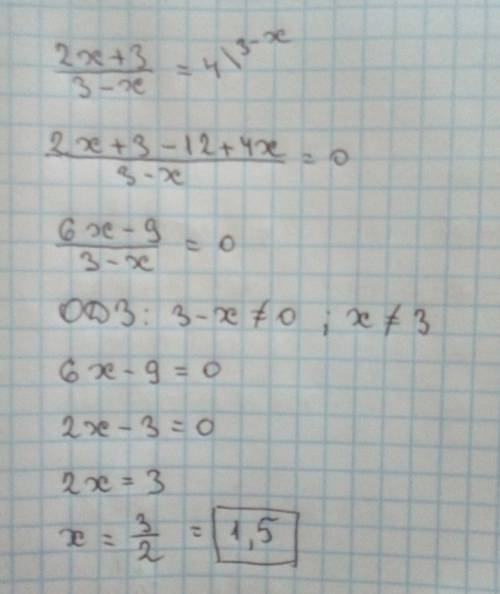 (2x+3)/(3-x) = 4\3-x
(2x+3-12+4x)/(3-x) = 0
(6x-9)/(3-x) = 0
ОДЗ: 3-x≠0 ; x≠3
6x-9=0
2x-3=0
2x=3
x = 3/2 = 1,5